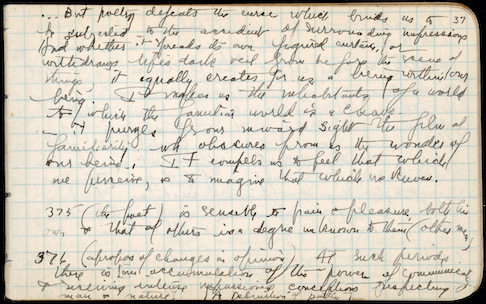 ... But poetry defeats the curse which binds us to 37
be subjected to the accident of surrounding impressions
And whether it spreads its own figured curtain, or
withdraws life's dark veil from before the scene of
things, it equally creates for us a being within our
being. It makes us the inhabitants of a world
to which the familiar world is a chaos
— it purges from our inward sight the film of
familiarity wh obscures from us the wonder of
our being. It compels us to feel that which
we perceive, & to imagine that which we know.
375 (the poet) is sensible to pain & pleasure, both his
own & that of others in a degree unknown to them (other men)
376 (apropos of changes in opinion) At such periods
there is an accumulation of the power of communicating
& receiving intense impassioned conceptions respecting
man & nature. A Defence of poetry